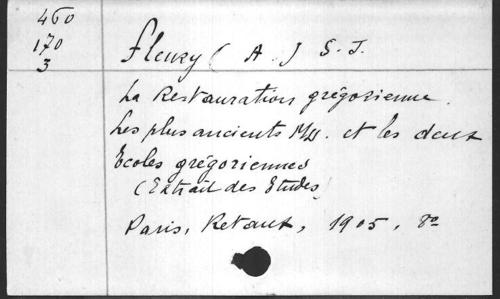 460
170
3
Fleury (A.) S. J.
La Restauration grégorienne.
Les plus ancients Mss. et les deux
Ecoles grégoriennes
(Extrait des Etudes)
Paris, Retaux, 1905, 8o